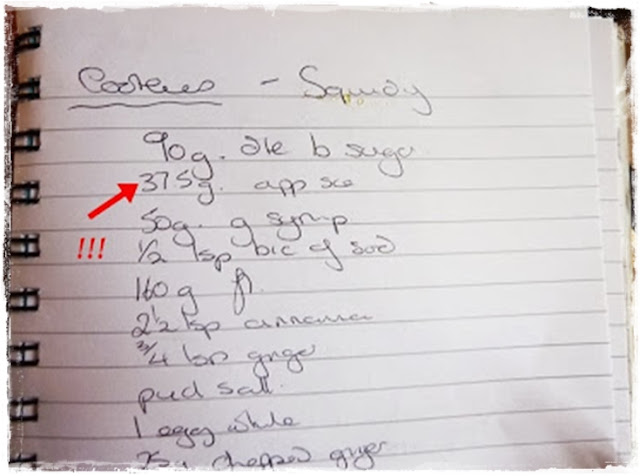 Cookies - Squidy
90g. dk b sugar
375g. app sce
50g. g syrup
!!! 1/2 tsp bic of sod
160g fl.
2 1/2 tsp cinnamon
3/4 tsp ginger
salt.
1 egg white
75g chopped ginger